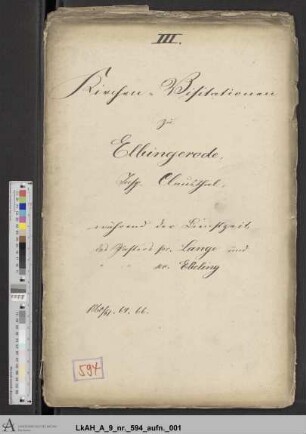 III.
Kirchen-Visitationen
zu
Elbingerode,
Insp. Clausthal,
während der Dienstzeit
des Pastors pr. Lange und
" " sec. Ebeling
594
LkAH_A_9_nr._594_aufn._001